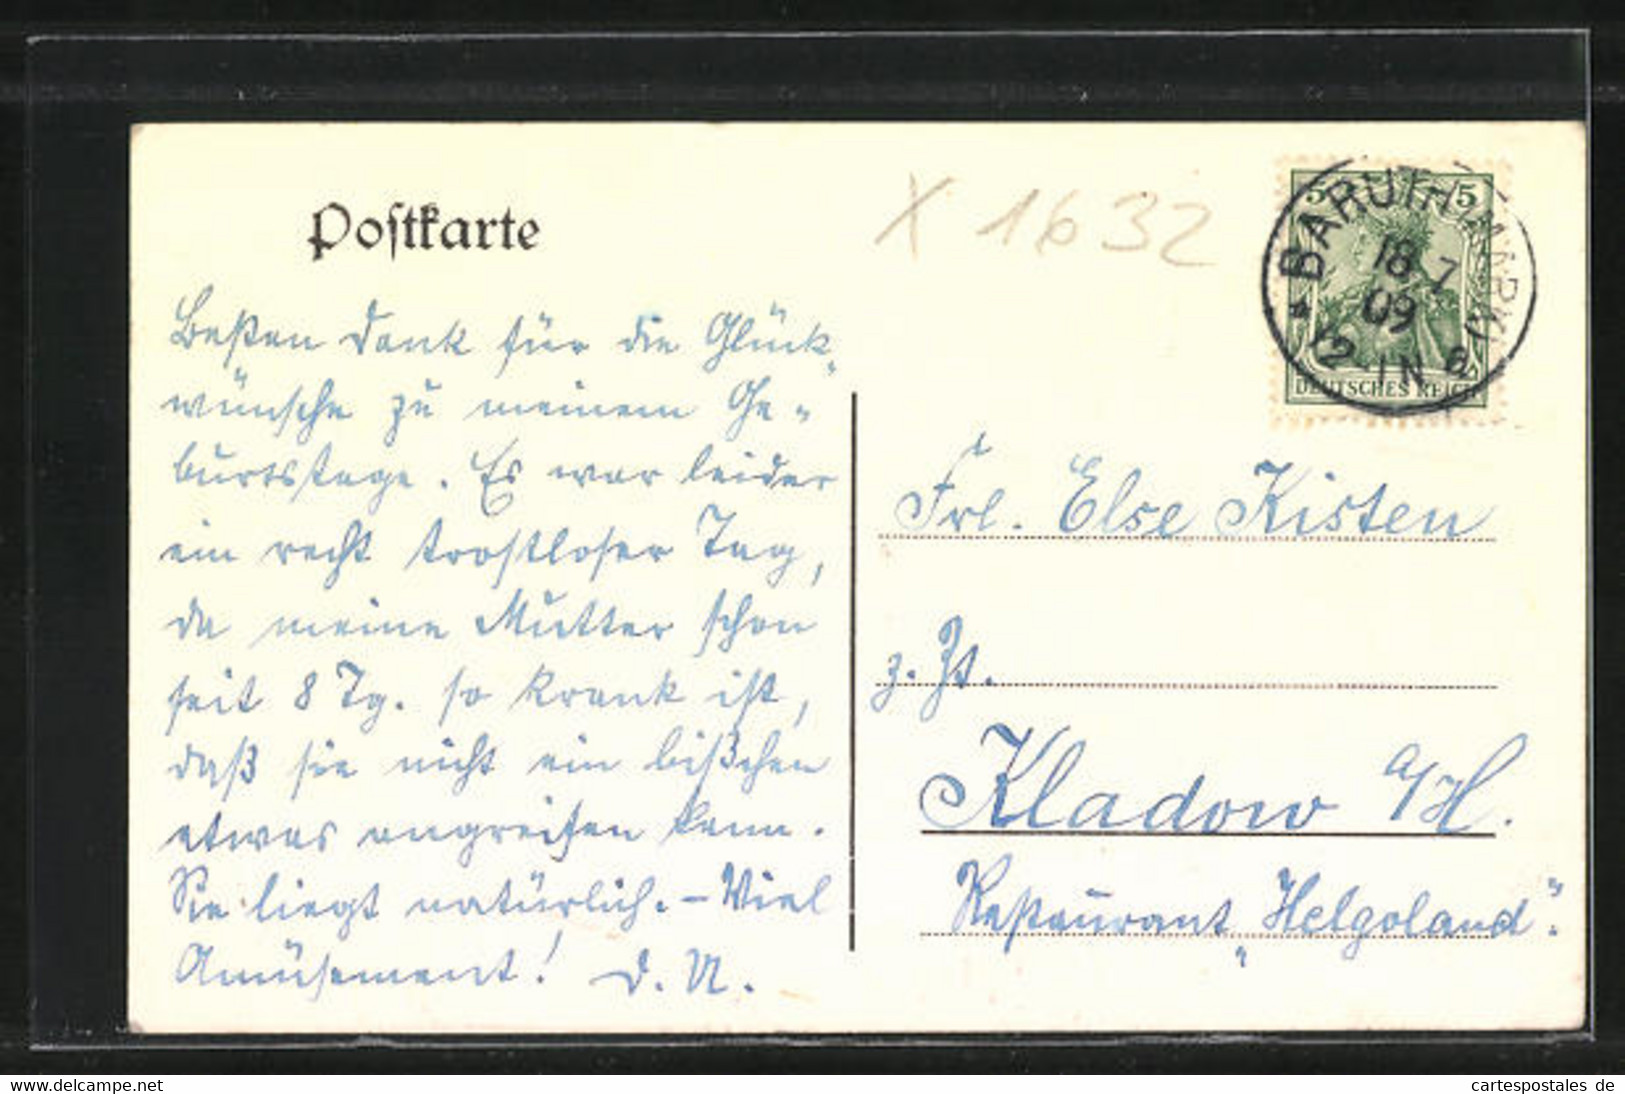 Postkarte
X 1632
5 5
BARUTH (MARK)
18 7
09
* 12-1N a
DEUTSCHES REICH
Besten Dank für die Glück-
wünsche zu meinem Ge-
burtstage. Es war leider
ein recht trostloser Tag,
da meine Mutter schon
seit 8 Tg. so krank ist,
daß sie nicht ein bißchen
etwas angreifen kann.
Sie liegt natürlich. – Viel
Amüsement! D. U.
Frl. Else Kisten
z. Zt.
Kladow a/H.
Restaurant „Helgoland".
www.delcampe.net
cartespostales_de